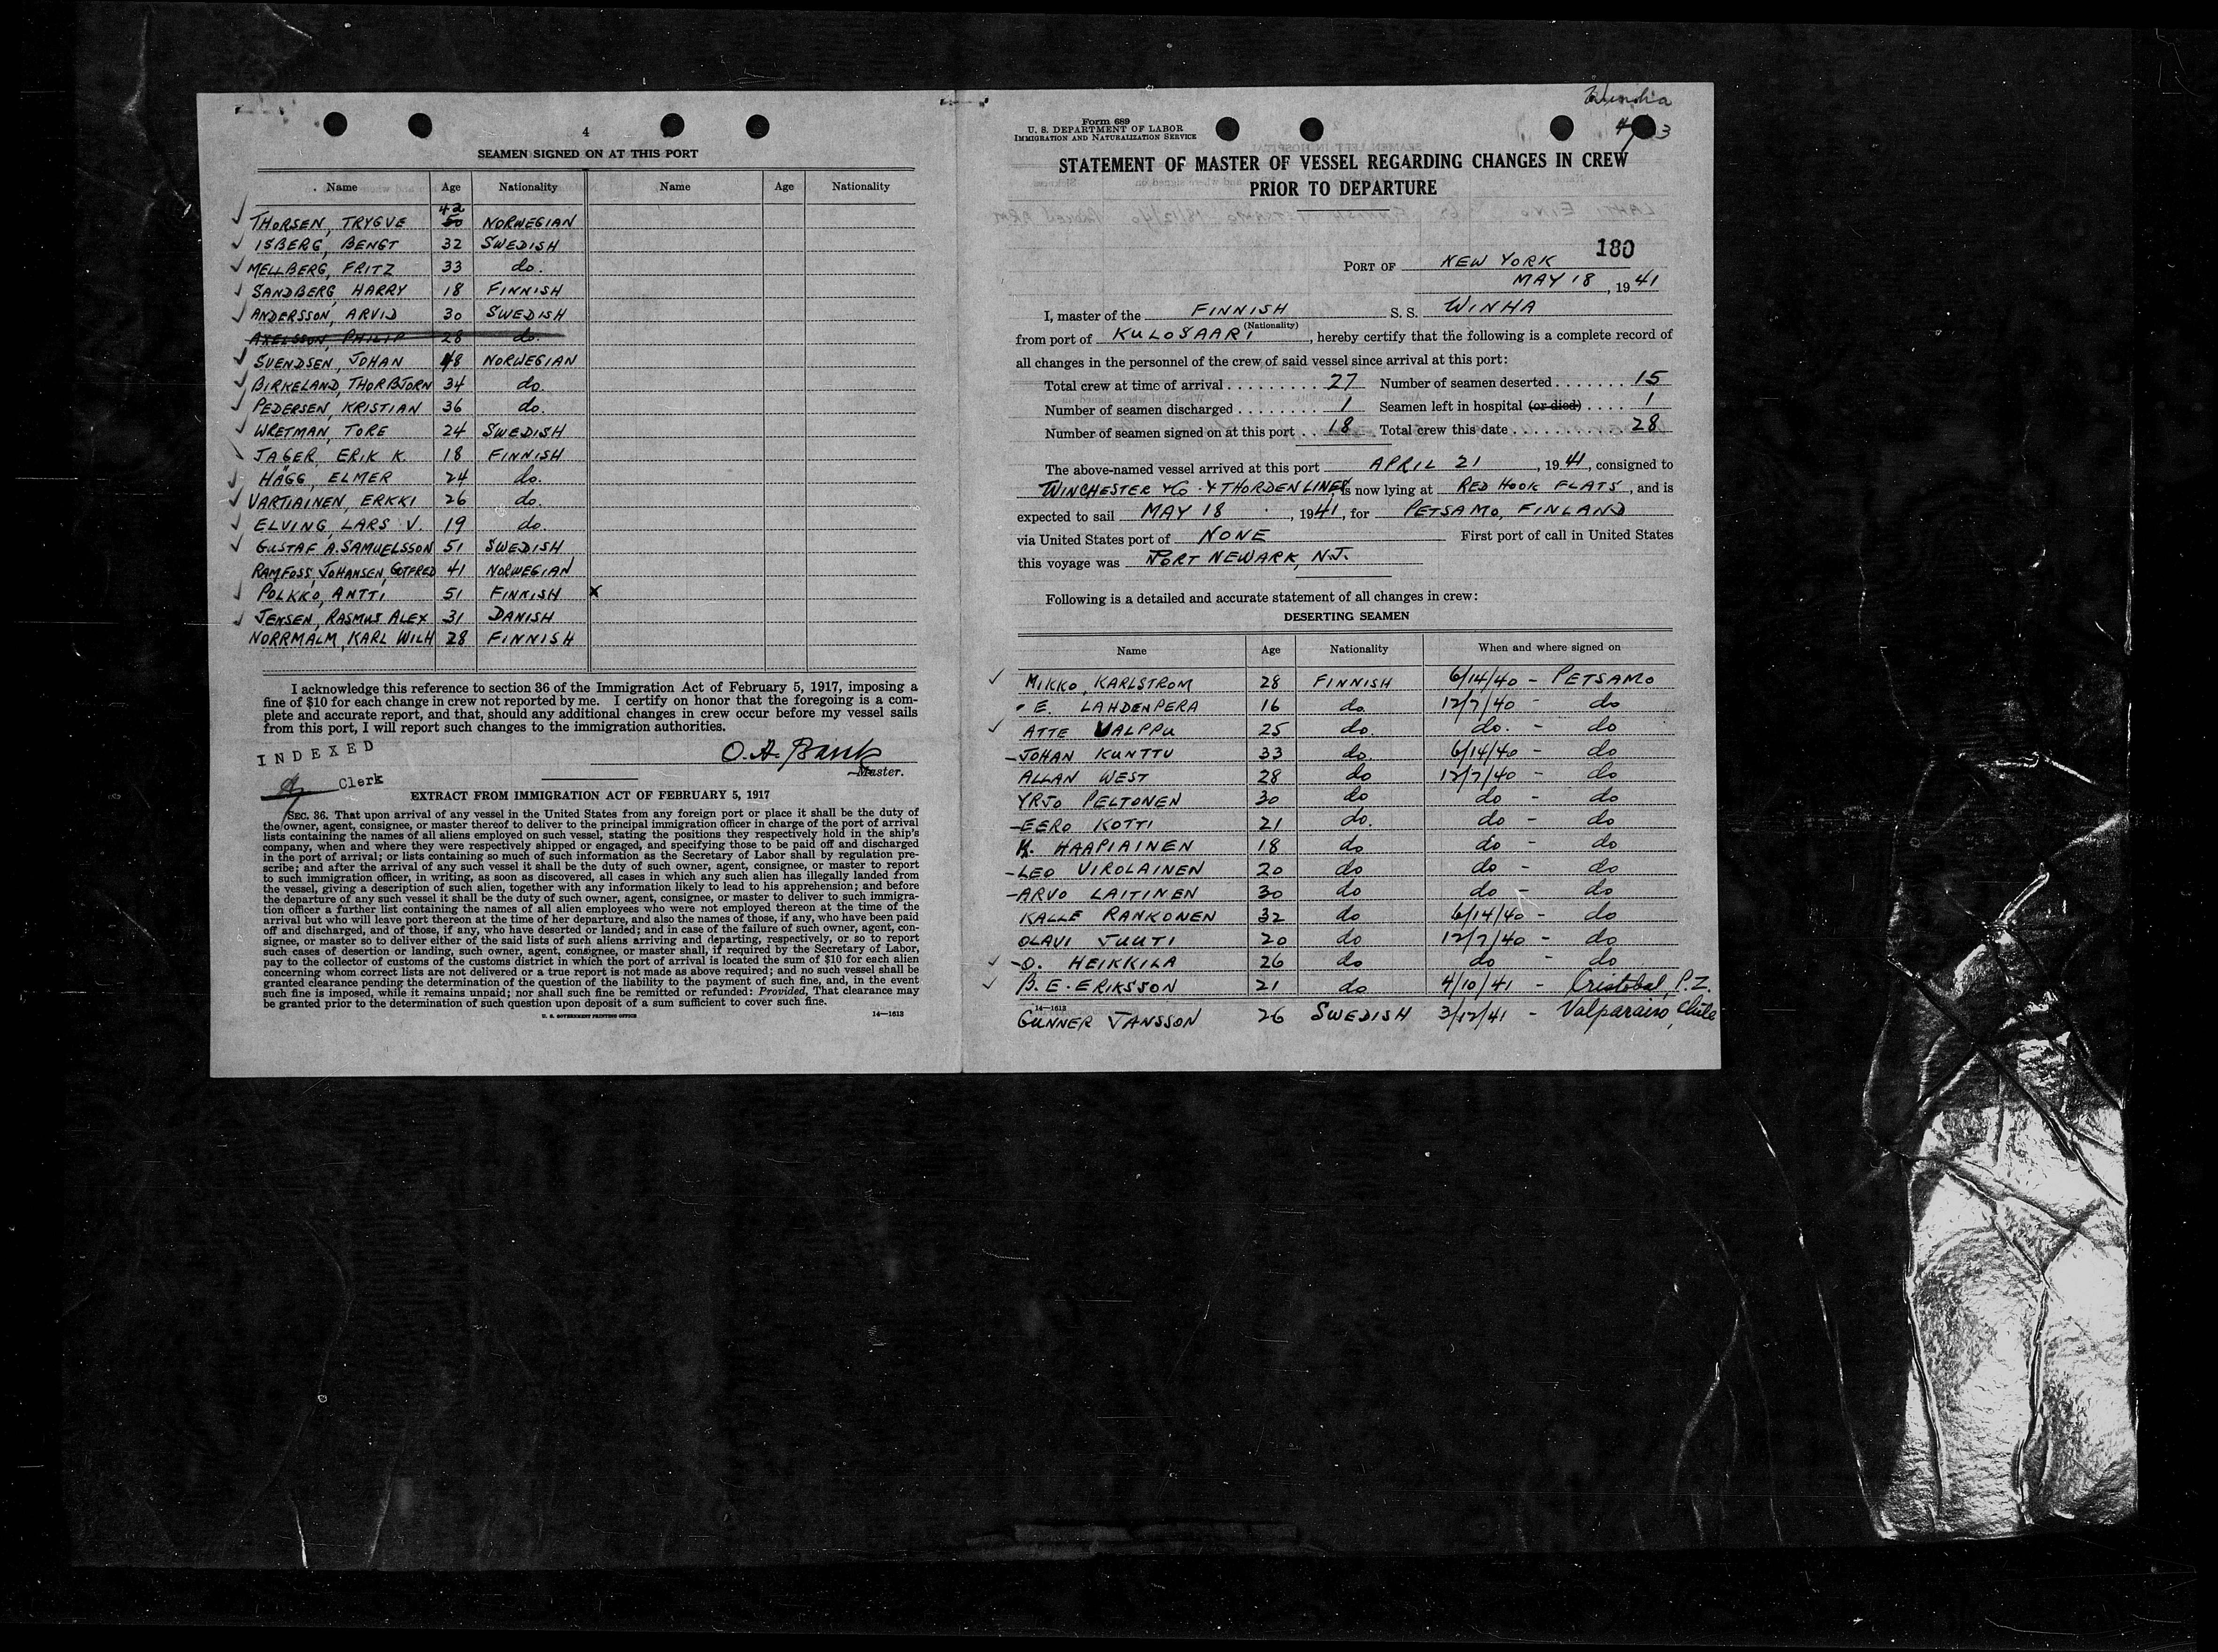 4
SEAMEN SIGNED ON AT THIS PORT
Name Age Nationality Name Age Nationality
THORSEN, TRYGVE 42 50 NORWEGIAN
ISBERG, BENGT 32 SWEDISH
MELLBERG, FRITZ 33 do.
SANDBERG HARRY 18 FINNISH
ANDERSSON, ARVID 30 SWEDISH
AXELSSON, PHILIP 28 do.
SVENDSEN, JOHAN 48 NORWEGIAN
BIRKELAND, THORBJORN 34 do.
PEDERSEN, KRISTIAN 36 do.
WRETMAN, TORE 24 SWEDISH
JAGER, ERIK K. 18 FINNISH
HÄGG, ELMER 24 do.
VARTIAINEN, ERKKI 26 do.
ELVING, LARS V. 19 do.
GUSTAF A. SAMUELSSON 51 SWEDISH
RAMFOSS, JOHANSEN, GOTFRED 41 NORWEGIAN
POLKKO, ANTTI 51 FINNISH x
JENSEN, RASMUS ALEX 31 DANISH
NORRMALM, KARL WILH 28 FINNISH
I acknowledge this reference to section 36 of the Immigration Act of February 5, 1917, imposing a
fine of $10 for each change in crew not reported by me. I certify on honor that the foregoing is a com-
plete and accurate report, and that, should any additional changes in crew occur before my vessel sails
from this port, I will report such changes to the immigration authorities.
INDEXED
O. A. Bank
Master.
Clerk
EXTRACT FROM IMMIGRATION ACT OF FEBRUARY 5, 1917
SEC. 36. That upon arrival of any vessel in the United States from any foreign port or place it shall be the duty of
the owner, agent, consignee, or master thereof to deliver to the principal immigration officer in charge of the port of arrival
lists containing the names of all aliens employed on such vessel, stating the positions they respectively hold in the ship's
company, when and where they were respectively shipped or engaged, and specifying those to be paid off and discharged
in the port of arrival; or lists containing so much of such information as the Secretary of Labor shall by regulation pre-
scribe; and after the arrival of any such vessel it shall be the duty of such owner, agent, consignee, or master to report
to such immigration officer, in writing, as soon as discovered, all cases in which any such alien has illegally landed from
the vessel, giving a description of such alien, together with any information likely to lead to his apprehension; and before
the departure of any such vessel it shall be the duty of such owner, agent, consignee, or master to deliver to such immigra-
tion officer a further list containing the names of all alien employees who were not employed thereon at the time of the
arrival but who will leave port thereon at the time of her departure, and also the names of those, if any, who have been paid
off and discharged, and of those, if any, who have deserted or landed; and in case of the failure of such owner, agent, con-
signee, or master so to deliver either of the said lists of such aliens arriving and departing, respectively, or so to report
such cases of desertion or landing, such owner, agent, consignee, or master shall, if required by the Secretary of Labor,
pay to the collector of customs of the customs district in which the port of arrival is located the sum of $10 for each alien
concerning whom correct lists are not delivered or a true report is not made as above required; and no such vessel shall be
granted clearance pending the determination of the question of the liability to the payment of such fine, and, in the event
such fine is imposed, while it remains unpaid; nor shall such fine be remitted or refunded: Provided, That clearance may
be granted prior to the determination of such question upon deposit of a sum sufficient to cover such fine.
U. S. GOVERNMENT PRINTING OFFICE 14—1613
Winha
Form 689
U. S. DEPARTMENT OF LABOR
IMMIGRATION AND NATURALIZATION SERVICE
STATEMENT OF MASTER OF VESSEL REGARDING CHANGES IN CREW
PRIOR TO DEPARTURE
180
PORT OF NEW YORK
MAY 18, 1941
I, master of the FINNISH S. S. WINHA
(Nationality)
from port of KULOSAARI, hereby certify that the following is a complete record of
all changes in the personnel of the crew of said vessel since arrival at this port:
Total crew at time of arrival 27 Number of seamen deserted 15
Number of seamen discharged 1 Seamen left in hospital (or died) 1
Number of seamen signed on at this port 18 Total crew this date 28
The above-named vessel arrived at this port APRIL 21, 1941, consigned to
WINCHESTER & Co. & THORDEN LINES, is now lying at RED HOOK FLATS, and is
expected to sail MAY 18, 1941, for PETSAMO, FINLAND
via United States port of NONE First port of call in United States
this voyage was PORT NEWARK, N.J.
Following is a detailed and accurate statement of all changes in crew:
DESERTING SEAMEN
Name Age Nationality When and where signed on
MIKKO, KARLSTROM 28 FINNISH 6/14/40 - PETSAMO
E. LAHDENPERA 16 do 12/7/40 - do
ATTE VALPPU 25 do. do. - do
JOHAN KUNTTU 33 do. 6/14/40 - do
ALLAN WEST 28 do 12/7/40 - do
YRJO PELTONEN 30 do do - do
EERO KOTTI 21 do. do - do
K. HAAPIAINEN 18 do do - do
LEO VIROLAINEN 20 do do - do
ARVO LAITINEN 30 do do - do
KALLE RANKONEN 32 do 6/14/40 - do
OLAVI JUUTI 20 do 12/7/40 - do
O. HEIKKILA 26 do do - do
B. E. ERIKSSON 21 do 4/10/41 - Cristobal, P. Z.
14—1613
GUNNER JANSSON 26 SWEDISH 3/12/41 - Valparaiso, Chile